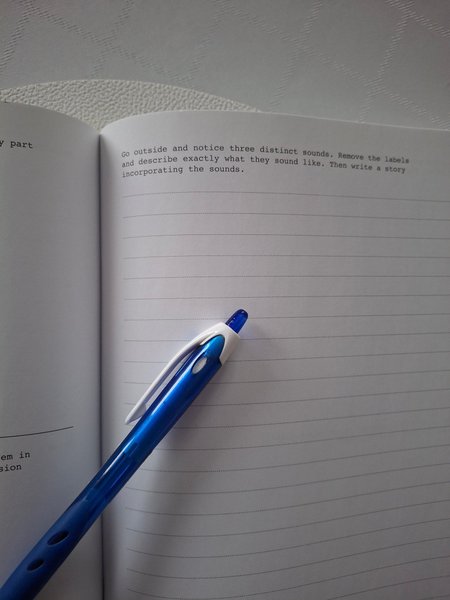 y part
Go outside and notice three distinct sounds. Remove the labels
and describe exactly what they sound like. Then write a story
incorporating the sounds.
em in
sion